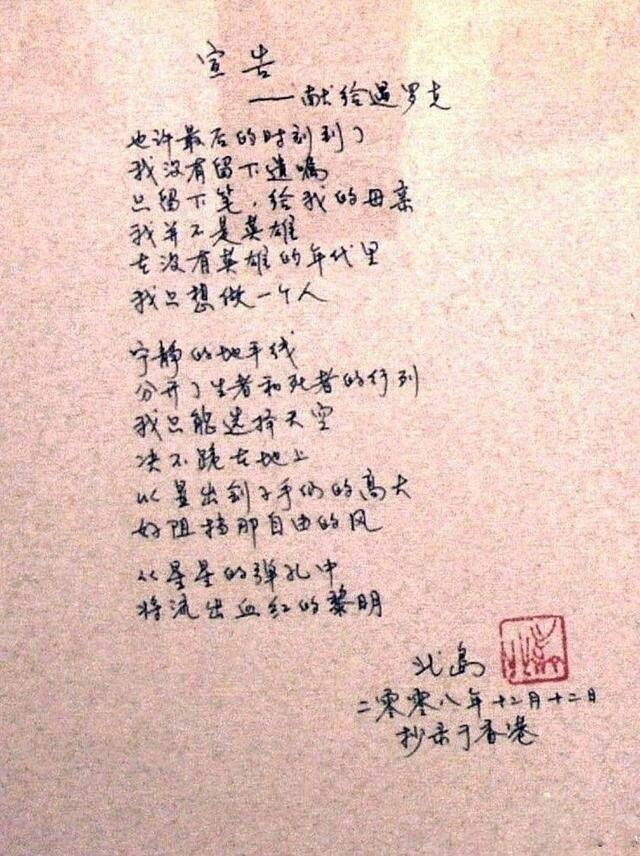 宣告
——献给遇罗克
也许最后的时刻到了
我没有留下遗嘱
只留下笔，给我的母亲
我并不是英雄
在没有英雄的年代里
我只想做一个人
宁静的地平线
分开了生者和死者的行列
我只能选择天空
决不跪在地上
以显出刽子手们的高大
好阻挡那自由的风
从星星的弹孔中
将流出血红的黎明
北岛
二零零八年十二月十二日
抄录于香港